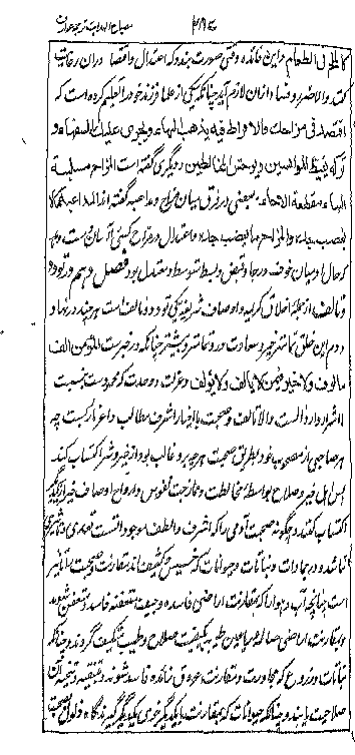 ۳۸۶
مصباح الهدایت ترجمه عوارف
کالملح فی الطعام و این فائده وقتی صورت بندد که اعتدال و اقتصاد در آن رعایت
کنند والا ضرر و فساد ازان لازم آید چنانکه یکی از علما فرزند خود را تعلیم کرده است که
اقتصد فی مزاحك فالافراط فیه یذهب البهاء ویجری علیك السفهاء و
ترکه یغیظ الموانسین ویوحش المخالطین و دیگری گفته است المزاح مسلبة
البهاء مقطعة الاخاء و بعضی در فرق میان مزاح و مداعبه گفته اند المداعبة ما لا
یغضب جده والمزاح ما یغضب جده و اعتدال در مزاح کسی را آسان است که
در حال او میان خوف و رجا و قبض و بسط متوسط و معتدل بود فصل دهم در تودد
و تالف از جمله اخلاق کریمه و اوصاف شریفه یکی تودد و تالف است
دوم این خلق خیر و سعادت درو بیشتر چنانکه در خبر است المومن الف
مالوف ولا خیر فیمن لا یالف ولا یولف و عزلت و وحدت که محمود است بنسبت
با اشرار و ارذال است والا تالف و صحبت با اخیار اشرف مطالب و اعز مآرب است چه
هر صاحبی از مصحوب خود بطریق صحبت هرچه برو غالب بود از خیر و شر اکتساب کند
پس اهل خیر و صلاح بواسطه مخالطت و ممازجت نفوس و ارواح اوصاف خیر از یکدیگر
اکتساب کنند و چگونه صحبت آدمی را که اشرف و الطف موجودات است تعدی و تاثیری
نباشد و در جمادات و نباتات و حیوانات که خسیس و کثیف اند مقارنت و صحبت را تاثیر
است چنانچه آب و هوا را که بمقارنت اراضی فاسده و جیف متعفنه فاسد و متعفن شوند
و بمقارنت اراضی صالحه و ریاحین طیبه بکیفیت صلاح و طیب متکیف گردند و چنانکه
نباتات و زروع که مجاورت و مقارنت عروق فاسده فاسد شوند و بتنقیه و تنحیه آن
صلاحیت یابند و چنانکه حیوانات که بمقارنت با یکدیگر خوی یکدیگر گیرند گاه ذلول بصحبت